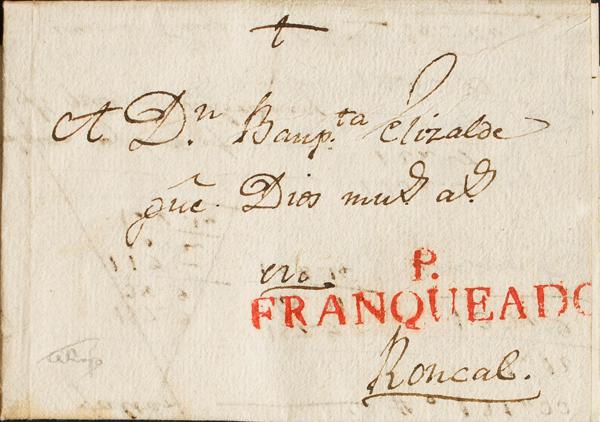 A Dn. Baup.ta Elizalde
gũe. Dios mus. as.
en
P.
FRANQUEADO
Roncal.